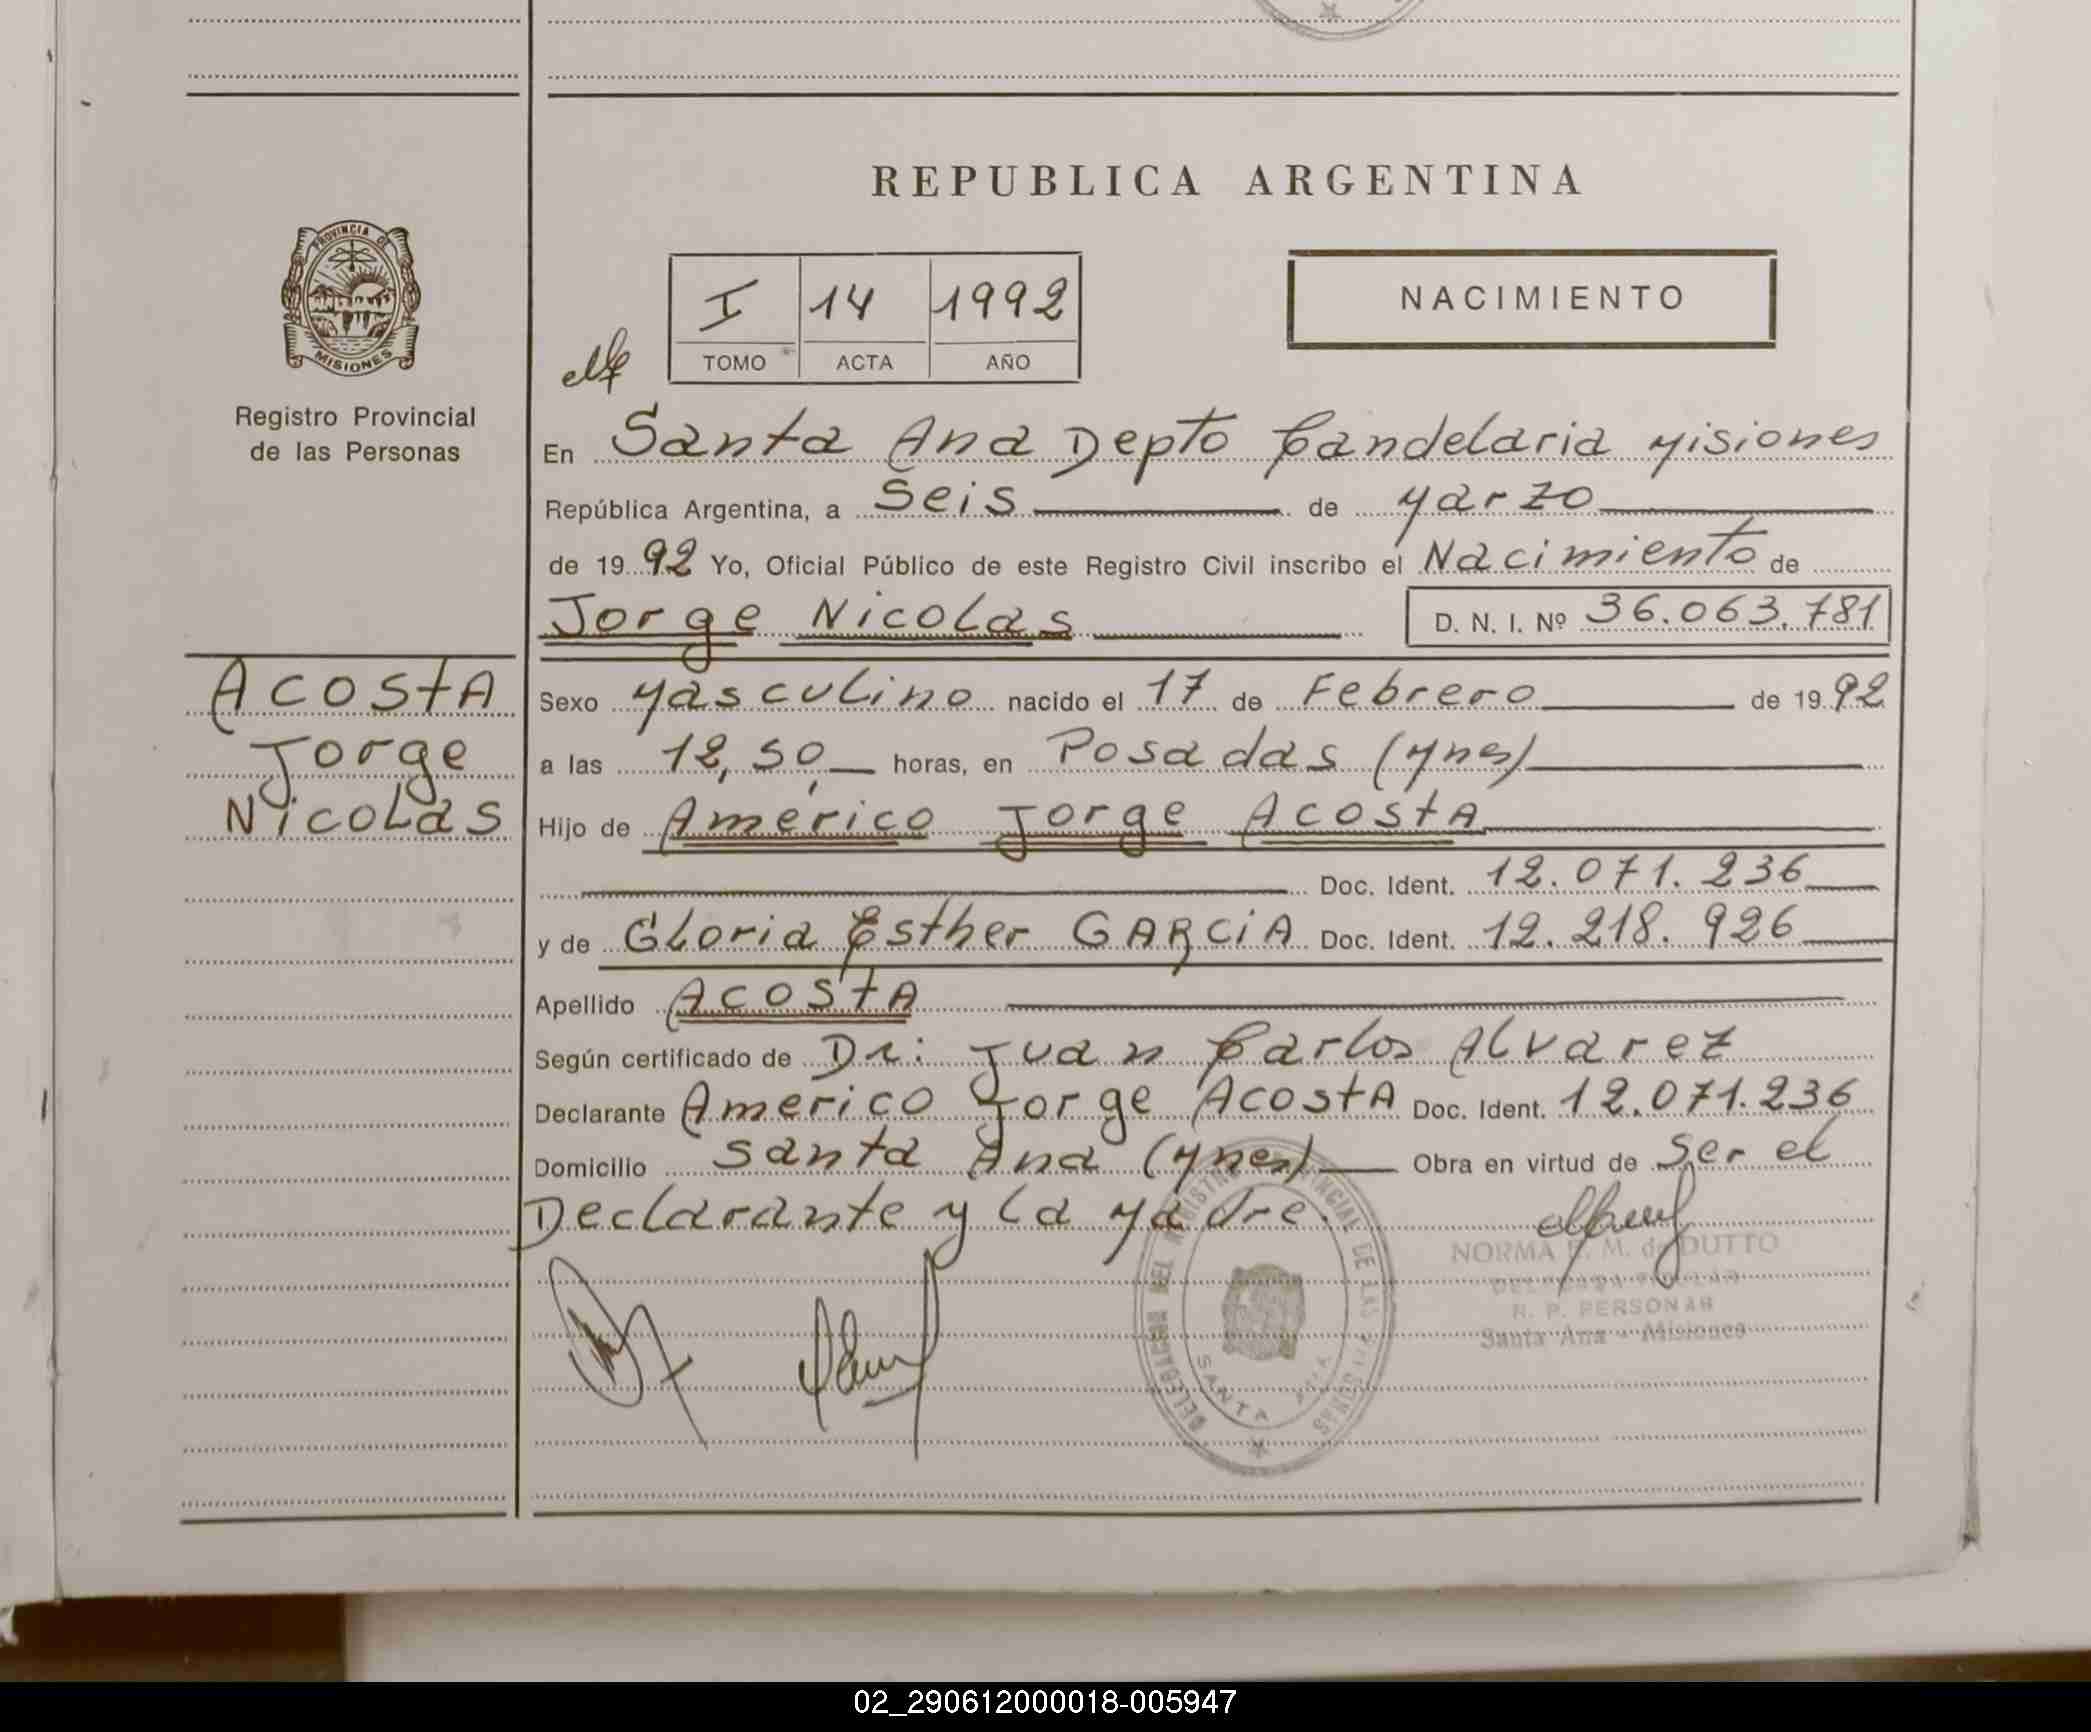 REPUBLICA ARGENTINA
PROVINCIA DE
MISIONES
Registro Provincial
de las Personas
I 14 1992
TOMO ACTA AÑO
NACIMIENTO
En Santa Ana Depto Candelaria Misiones
República Argentina, a Seis de Marzo
de 1992 Yo, Oficial Público de este Registro Civil inscribo el Nacimiento de
Jorge Nicolas D. N. I. Nº 36.063.781
Acosta
Jorge
Nicolas
Sexo Masculino nacido el 17 de Febrero de 1992
a las 12,50 horas, en Posadas (Mnes)
Hijo de Américo Jorge Acosta
Doc. Ident. 12.071.236
y de Gloria Esther GARCIA Doc. Ident. 12.218.926
Apellido Acosta
Según certificado de Dr: Juan Carlos Alvarez
Declarante Americo Jorge Acosta Doc. Ident. 12.071.236
Domicilio Santa Ana (Mnes) Obra en virtud de Ser el
Declarante y la Madre.
NORMA E. M. de DUTTO
R. P. PERSONAS
Santa Ana - Misiones
DELEGACION DEL REGISTRO PROVINCIAL DE LAS PERSONAS
SANTA ANA
02_290612000018-005947